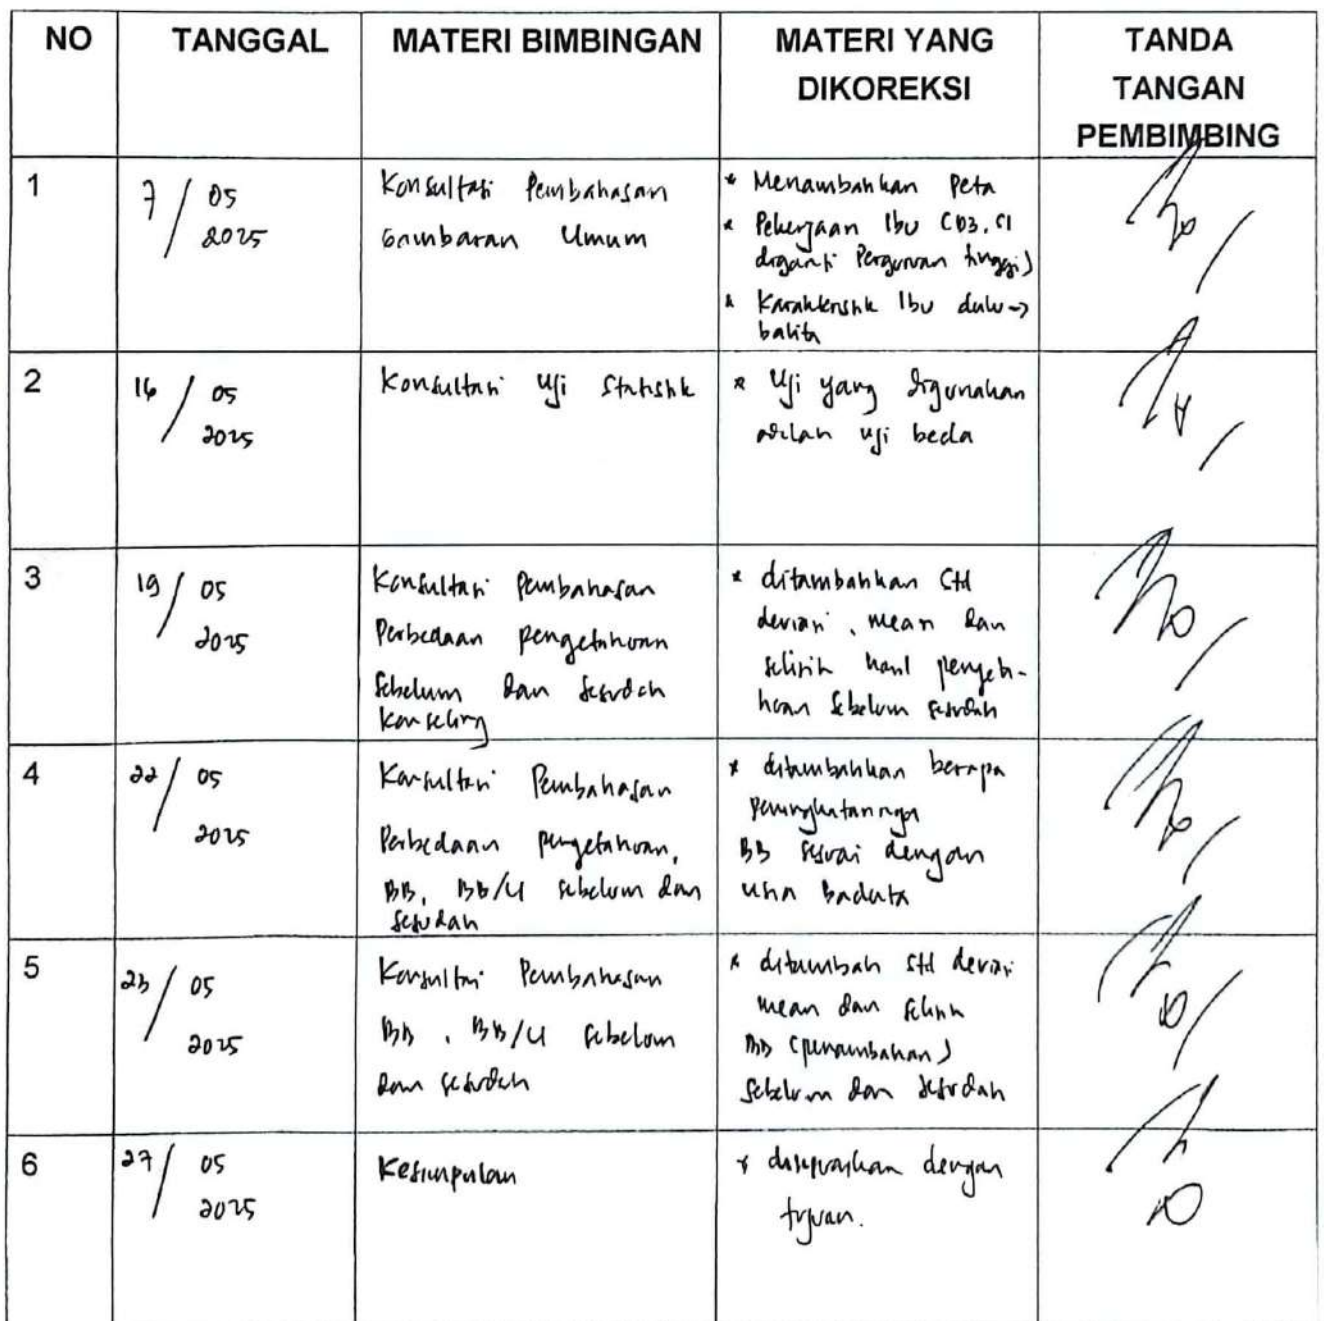 NO
TANGGAL
MATERI BIMBINGAN
MATERI YANG
DIKOREKSI
TANDA
TANGAN
PEMBIMBING
1
7 / 05
2025
Konsultasi Pembahasan
Gambaran Umum
* Menambahkan Peta
* Pekerjaan Ibu (D3, S1
diganti Perguruan tinggi)
* Karakteristik Ibu dulu ->
balita
2
16 / 05
2025
Konsultasi Uji Statistik
* Uji yang digunakan
adalah uji beda
3
19 / 05
2025
Konsultasi Pembahasan
Perbedaan pengetahuan
Sebelum dan sesudah
konseling
* ditambahkan Std
deviasi, mean dan
selisih hasil pengeta-
huan sebelum sesudah
4
22 / 05
2025
Konsultasi Pembahasan
Perbedaan pengetahuan,
BB, BB/U sebelum dan
sesudah
* ditambahkan berapa
peningkatannya
BB sesuai dengan
usia baduta
5
23 / 05
2025
Konsultasi Pembahasan
BB, BB/U sebelum
dan sesudah
* ditambah std deviasi
mean dan selisih
BB (penambahan)
sebelum dan sesudah
6
27 / 05
2025
Kesimpulan
* disesuaikan dengan
tujuan.